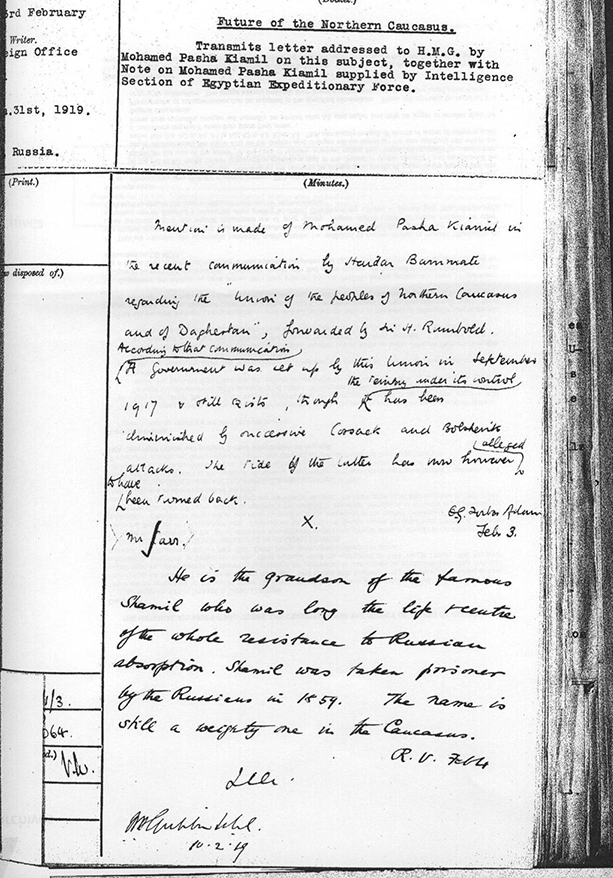 (Docket.)
3rd February
Future of the Northern Caucasus.
Writer.
eign Office
Transmits letter addressed to H.M.G. by
Mohamed Pasha Kiamil on this subject, together with
Note on Mohamed Pasha Kiamil supplied by Intelligence
Section of Egyptian Expeditionary Force.
31st, 1919.
Russia.
(Print.)
(Minutes.)
Mention is made of Mohamed Pasha Kiamil in
the recent communication by Haidar Bammate
regarding the "Union of the peoples of Northern Caucasus
and of Daghestan", forwarded by Sir H. Rumbold.
According to that communication
A Government was set up by this Union in September
the territory under its control
1917 & still exists, though it has been
diminished by successive Cossack and Bolshevik
alleged
attacks. The tide of the latter has now however
to have
been turned back.
w disposed of.)
X.
Feb. 3.
Mr
He is the grandson of the famous
Shamil who was long the life & centre
of the whole resistance to Russian
absorption. Shamil was taken prisoner
by the Russians in 1859. The name is
still a weighty one in the Caucasus.
/3.
064.
d.)
10.2.19